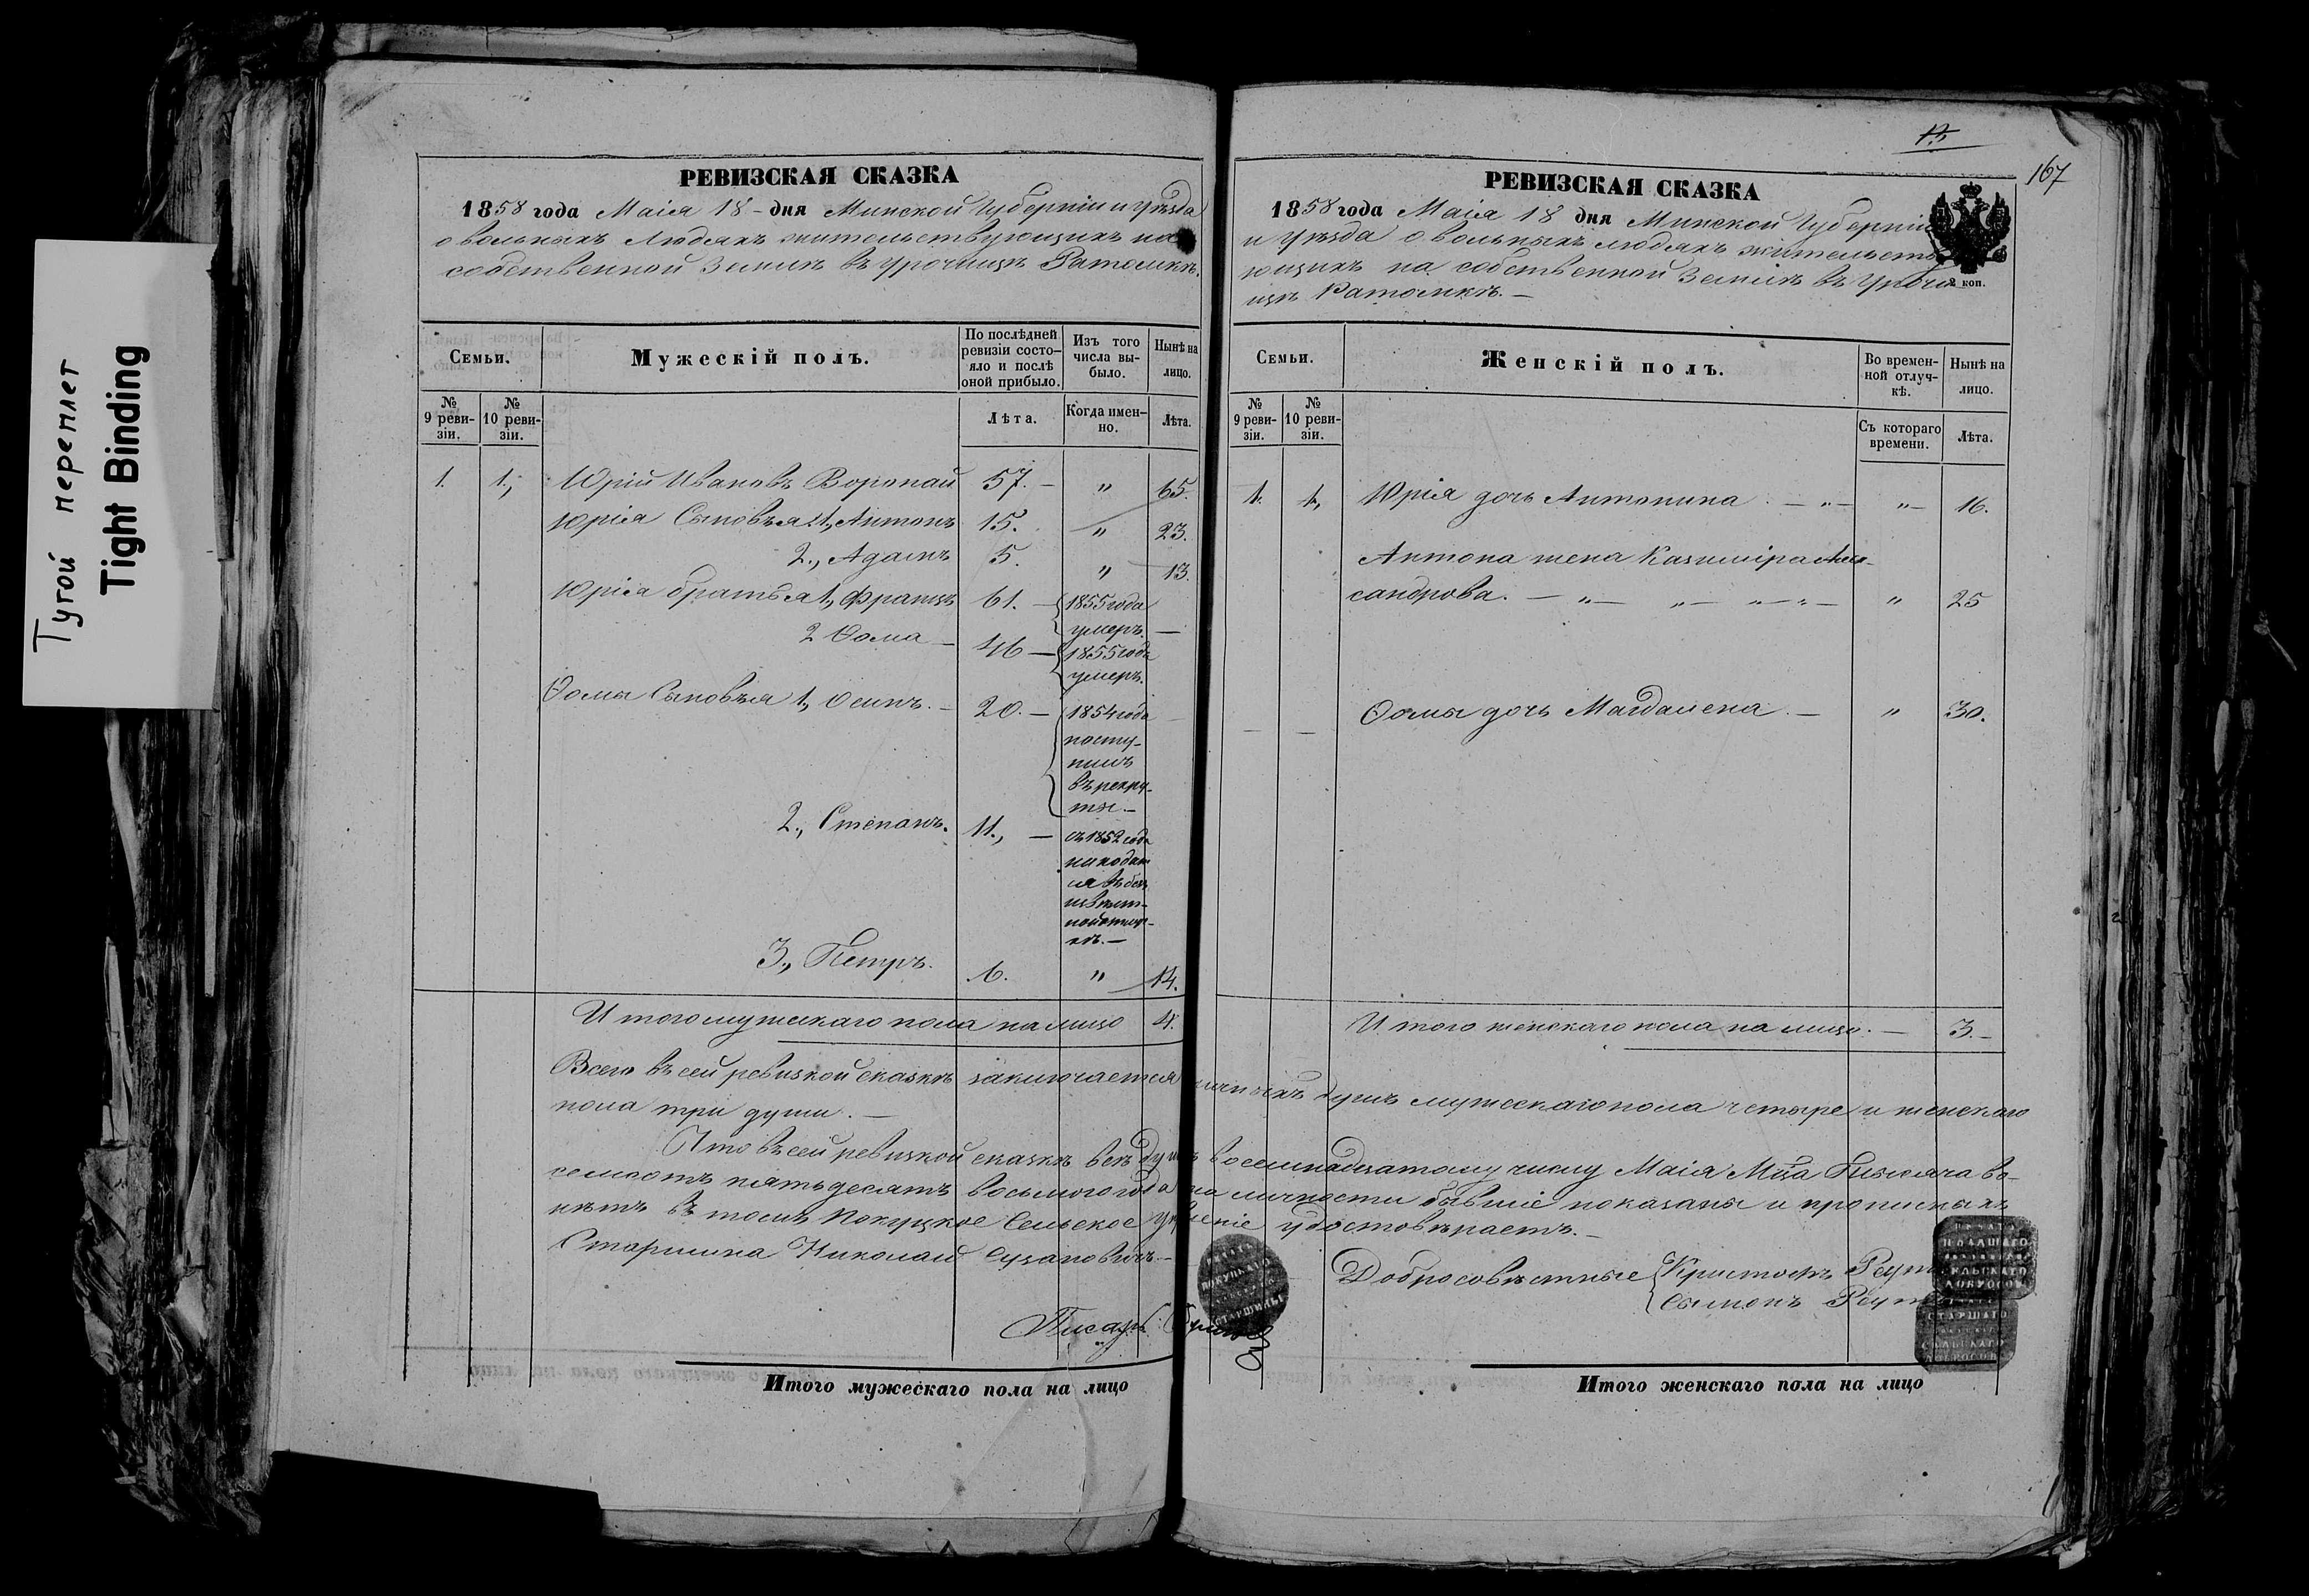 Тугой переплет
Tight Binding
РЕВИЗСКАЯ СКАЗКА
1858 года Маія 18 - дня Минской Губерніи и Уѣзда
о вольныхъ Людяхъ жительствующихъ на
собственной Землѣ въ Урочищѣ Ратомкѣ.
Семьи.
Мужескій полъ.
По послѣдней ревизіи состояло и послѣ оной прибыло.
Изъ того числа выбыло.
Нынѣ на лицо.
№ 9 ревизіи.
№ 10 ревизіи.
Лѣта.
Когда именно.
Лѣта.
1. 1., Юрій Ивановъ Воропай 57. — " 65.
Юрія Сыновья 1., Антонъ 15. " 23.
2., Адамъ 5. " 13.
Юрія братья 1., Францъ 61. — 1855 года
умеръ. —
2 Ѳома — 46 — 1855 года
умеръ.
Ѳомы Сыновья 1., Осипъ. — 20. — 1854 года
посту-
пилъ
въ рекру-
ты. —
2., Степанъ. 11., — съ 1852 года
находит
ся въ без
извѣст-
ной отлуч-
кѣ. —
3., Петръ. 6. " 14.
Итого мужескаго пола на лицо 4.
РЕВИЗСКАЯ СКАЗКА
13
167
1858 года Маія 18 дня Минской Губерніи
и Уѣзда о вольныхъ людяхъ жительств
ющихъ на собственной Землѣ въ Урочи
щѣ Ратомкѣ. —
2 коп.
Семьи.
Женскій полъ.
Во временной отлучкѣ.
Нынѣ на лицо.
№ 9 ревизіи.
№ 10 ревизіи.
Съ котораго времени.
Лѣта.
1. 1., Юрія дочь Антонина. — " — " — 16.
Антона жена Казиміра Алек-
сандрова. — " — " — " — " — " 25
Ѳомы дочь Магдалена. — " 30.
Итого женскаго пола на лицо. — 3. —
Всего въ сей ревизкой сказкѣ заключается личныхъ душъ мужескаго пола четыре и женскаго
пола три души. —
Что въ сей ревизкой сказкѣ всѣ души восемнадцатому числу Маія Мца Тысяча во-
семсотъ пятьдесятъ восьмого года на личности бывшіе показаны и прописныхъ
нѣтъ въ томъ Сельское удостовѣряетъ. —
Старшина Николай Сузановичъ. —
Добросовѣстные Кристофъ
Сымонъ
Писарь
СТАРШИНЫ
МЛАДШАГО
СЕЛЬСКАГО
ДОБРОСОВ
СТАРШАГО
СЕЛЬСКАГО
ДОБРОСОВ
Итого мужескаго пола на лицо
Итого женскаго пола на лицо